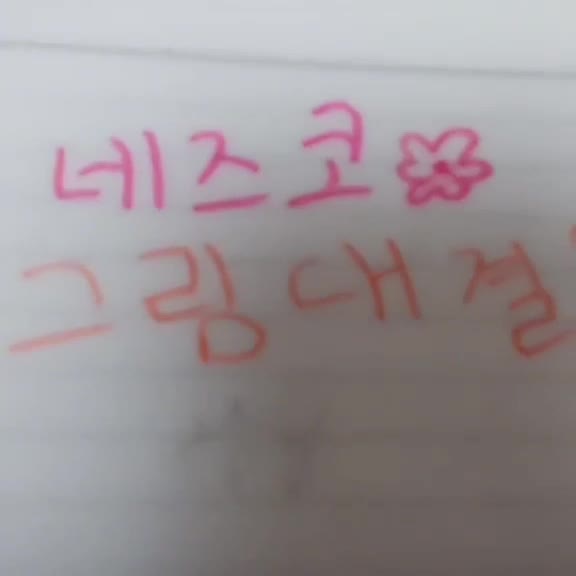 네즈코
그림대결